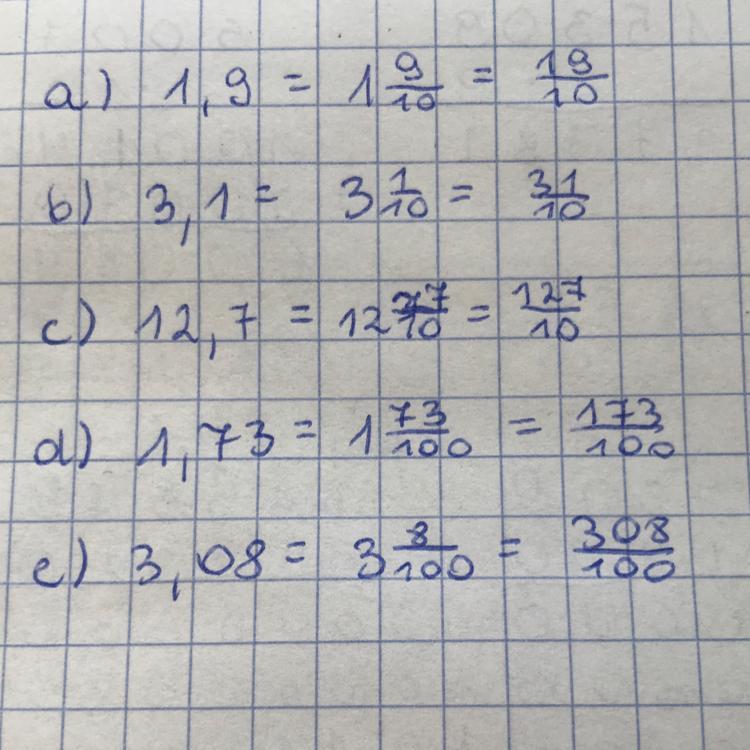 a) 1,9 = 1 9/10 = 19/10
b) 3,1 = 3 1/10 = 31/10
c) 12,7 = 12 7/10 = 127/10
d) 1,73 = 1 73/100 = 173/100
e) 3,08 = 3 8/100 = 308/100